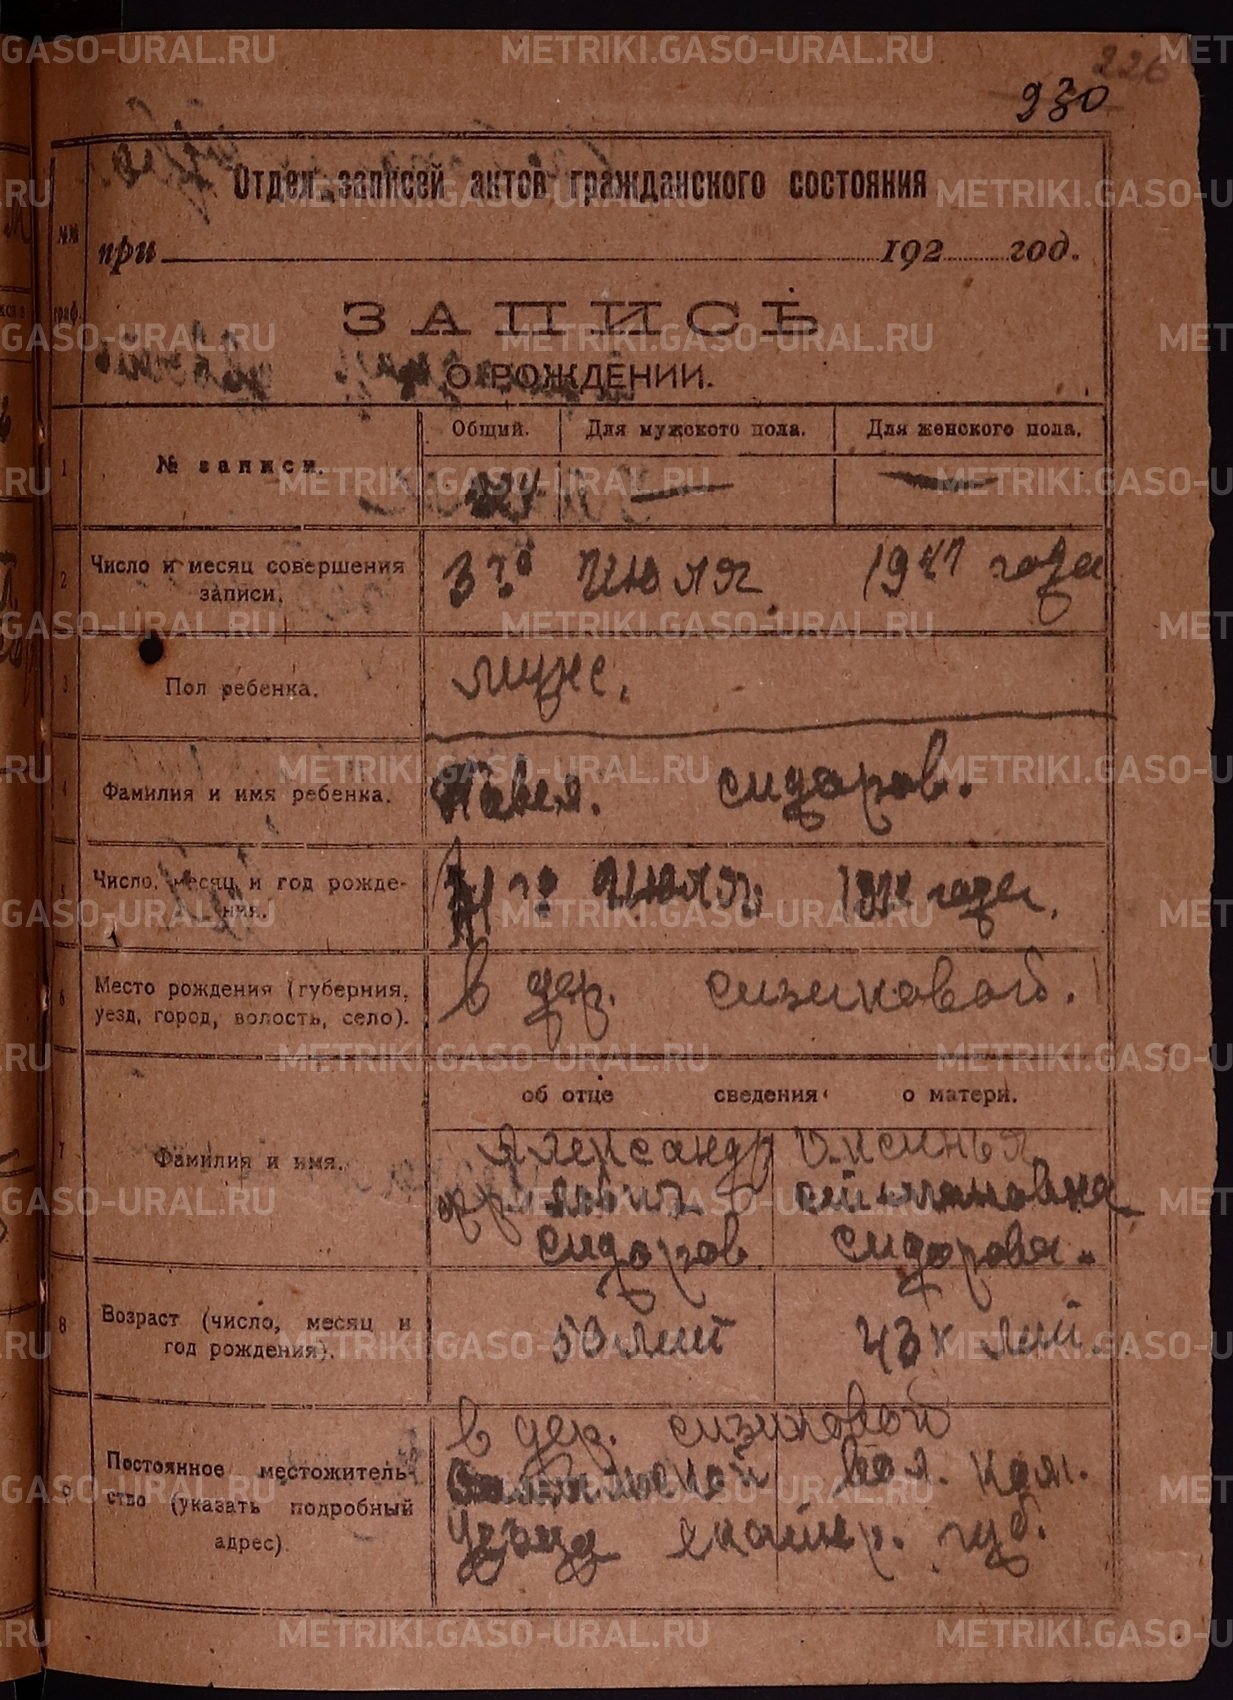 226
930
Отдел записей актов гражданского состояния
№№ граф.
при 192 год.
ЗАПИСЬ
О РОЖДЕНИИ.
Общий. Для мужского пола. Для женского пола.
1 № записи.
2 Число и месяц совершения записи. 3го Июля года
3 Пол ребенка. муж.
4 Фамилия и имя ребенка. Павел. сидоров.
5 Число, месяц и год рождения. го Июля года.
6 Место рождения (губерния, уезд, город, волость, село). в дер. сизиковой.
об отце сведения о матери.
7 Фамилия и имя. Александр
сидоров Сидорова.
8 Возраст (число, месяц и год рождения). 50 лит 43х лит.
9 Постоянное местожительство (указать подробный адрес). в дер. сизиковой
вол. кам.
уезда екатер. губ.
METRIKI.GASO-URAL.RU